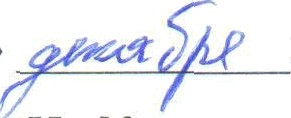 декабря